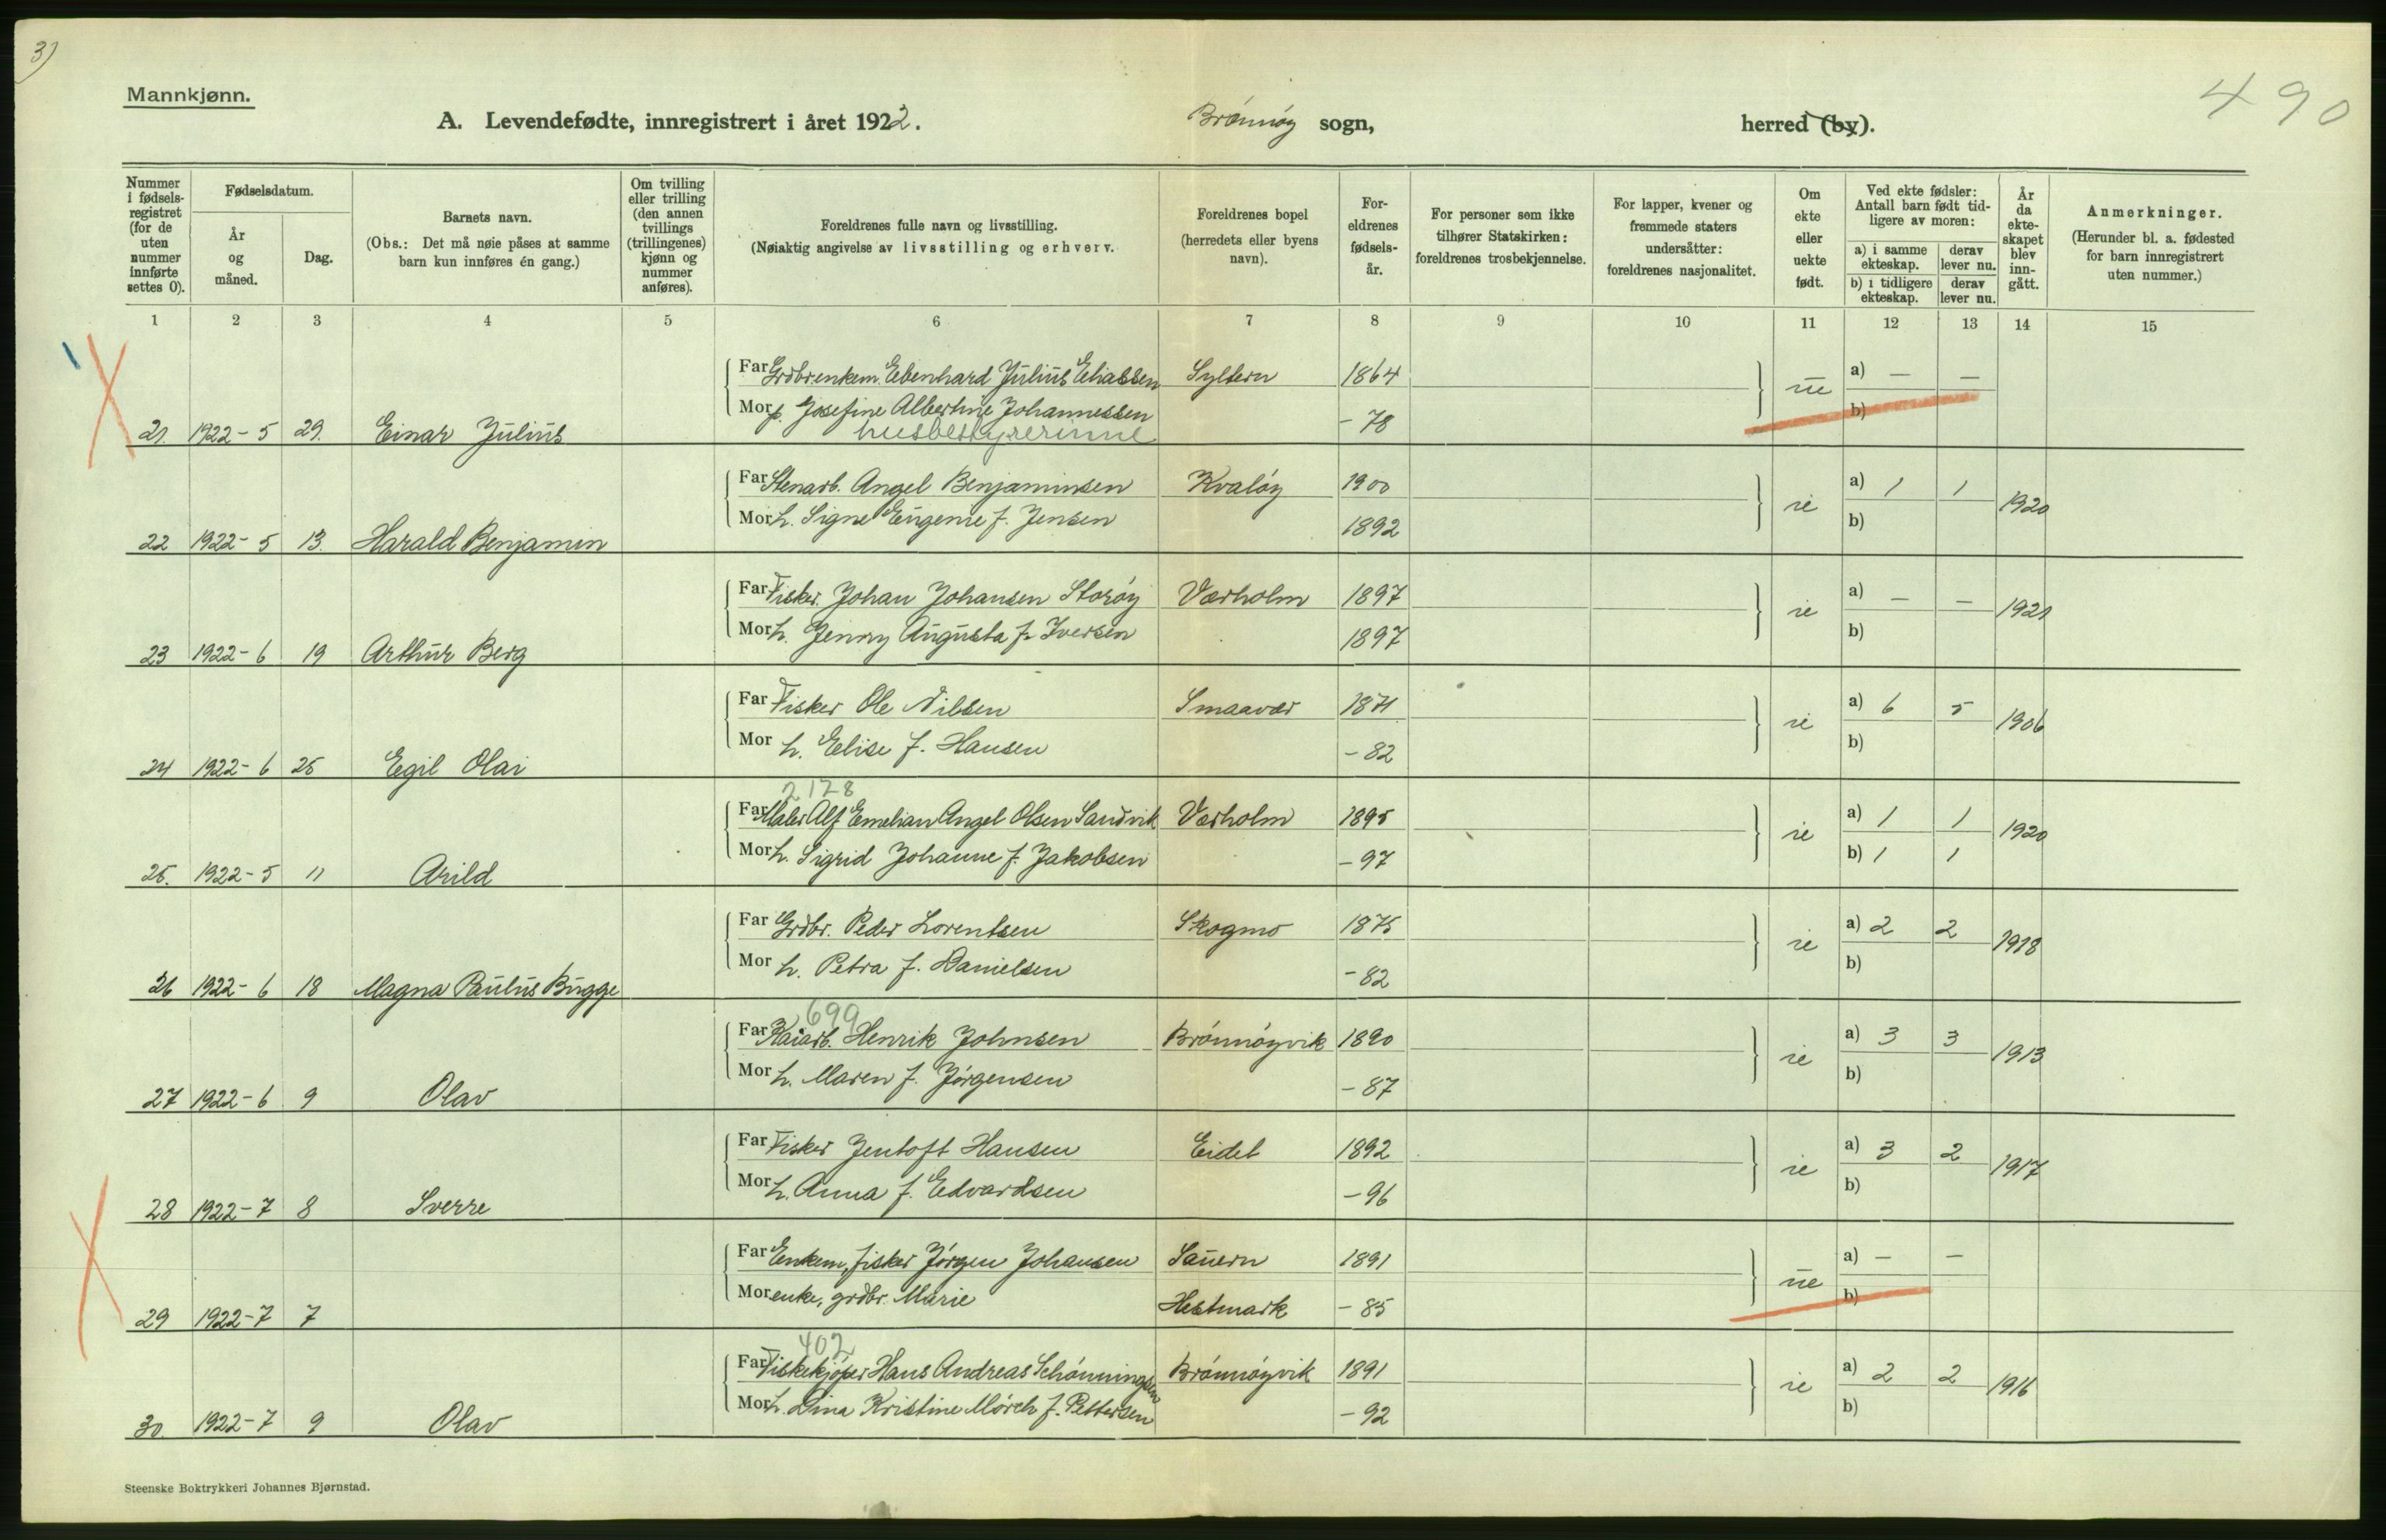 3)
Mannkjønn.
490
A. Levendefødte, innregistrert i året 1922. Brønnøy sogn, herred (by).
Nummer i fødsels-registret (for de uten nummer innførte settes 0).
Fødselsdatum.
År og måned.
Dag.
Barnets navn.
(Obs.: Det må nøie påses at samme barn kun innføres én gang.)
Om tvilling eller trilling (den annen tvillings (trillingenes) kjønn og nummer anføres).
Foreldrenes fulle navn og livsstilling.
(Nøiaktig angivelse av livsstilling og erhverv.
Foreldrenes bopel (herredets eller byens navn).
For-eldrenes fødsels-år.
For personer som ikke tilhører Statskirken: foreldrenes trosbekjennelse.
For lapper, kvener og fremmede staters undersåtter: foreldrenes nasjonalitet.
Om ekte eller uekte født.
Ved ekte fødsler: Antall barn født tid-ligere av moren:
a) i samme ekteskap. derav lever nu.
b) i tidligere ekteskap. derav lever nu.
År da ekte-skapet blev inn-gått.
Anmerkninger.
(Herunder bl. a. fødested for barn innregistrert uten nummer.)
1 2 3 4 5 6 7 8 9 10 11 12 13 14 15
Far Grdbr. enkem. Ebenhard Julius Eliassen Syltern 1864 ue a) — —
Mor p. Josefine Albertine Johannessen - 78 b)
husbestyrerinne
21 1922-5 29. Einar Julius
Far Stenarb. Angel Benjaminsen Kvaløy 1900 ie a) 1 1 1920
Mor h. Signe Eugenie f. Jensen 1892 b)
22 1922-5 13. Harald Benjamin
Far Fisker. Johan Johansen Storøy Værholm 1897 ie a) — — 1921
Mor h. Jenny Augusta f. Iversen 1897 b)
23 1922-6 19 Arthur Berg
Far Fisker Ole Nilsen Smaavær 1871 ie a) 6 5 1906
Mor h. Elise f. Hansen - 82 b)
24 1922-6 25 Egil Olai
2128
Far Maler Alf Emelian Angel Olsen Sandvik Værholm 1895 ie a) 1 1 1920
Mor h. Sigrid Johanne f. Jakobsen - 97 b) 1 1
25. 1922-5 11 Arild
Far Grdbr. Peder Lorentsen Skogmo 1875 ie a) 2 2 1918
Mor h. Petra f. Danielsen - 82 b)
26 1922-6 18 Magna Paulus Bugge
699
Far Kaiarb. Henrik Johnsen Brønnøyvik 1890 ie a) 3 3 1913
Mor h. Maren f. Jørgensen - 87 b)
27 1922-6 9 Olav
Far Fisker Jentoft Hansen Eidet 1892 ie a) 3 2 1917
Mor h. Anna f. Edvardsen - 96 b)
28 1922-7 8 Sverre
Far Enkem, fisker Jørgen Johansen Sauern 1891 ue a) — —
Mor enke, grdbr. Marie Hestmark - 85 b)
29 1922-7 7
402
Far Fiskekjøper Hans Andreas Schønningsen Brønnøyvik 1891 ie a) 2 2 1916
Mor h. Lina Kristine Mörch f. Pettersen - 92 b)
30 1922-7 9 Olav
Steenske Boktrykkeri Johannes Bjørnstad.